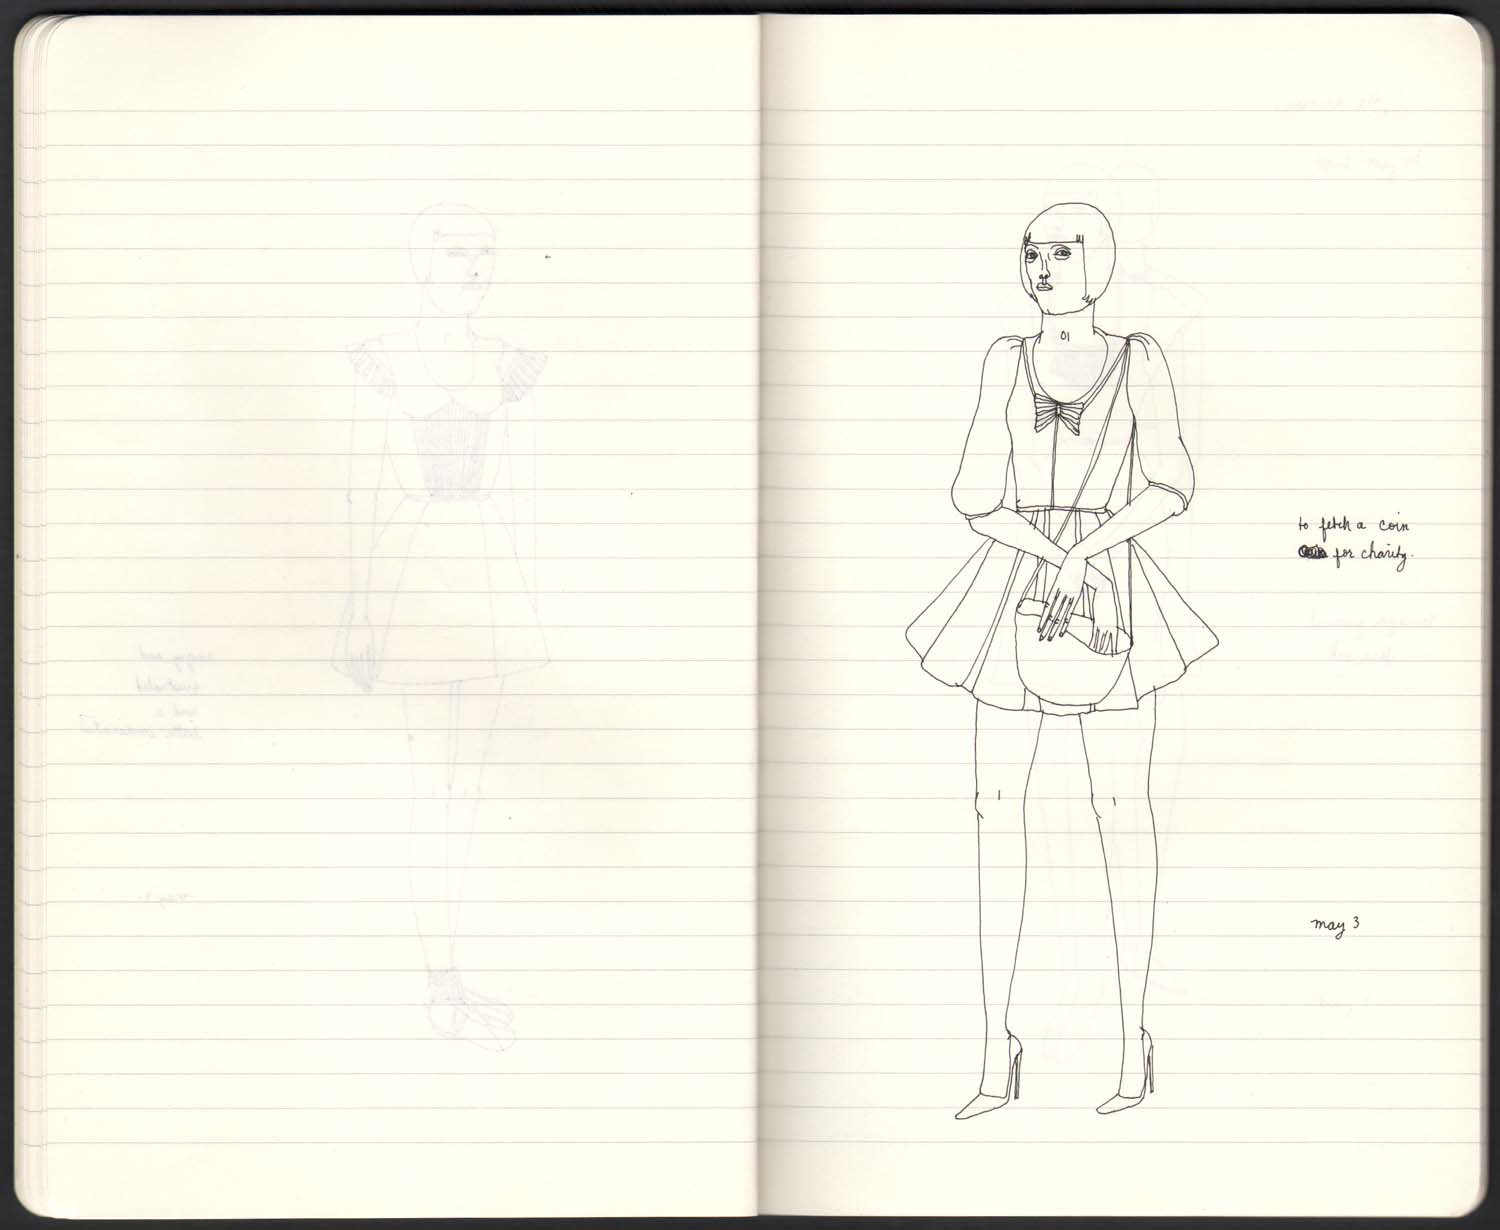 to fetch a coin
for charity.
may 3